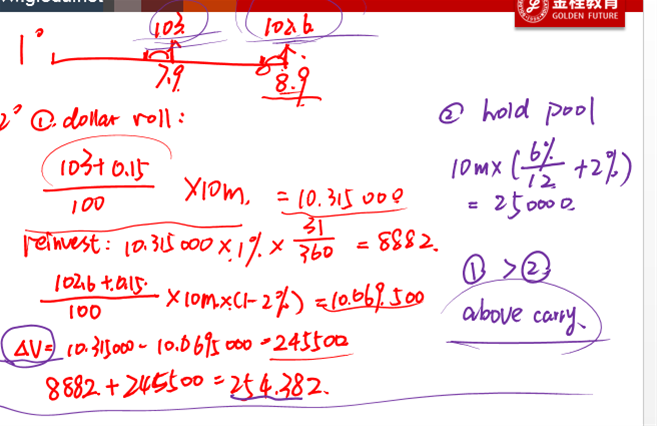 金程教育
GOLDEN FUTURE
103
102.6
1°
7.9
8.9
2° ① dollar roll:
103+0.15
100
×10m. = 10.315 000
reinvest: 10.315 000 × 1% × 31/360 = 8882.
102.6 + 0.15.
100
×10m×(1-2%) = 10.069.500
ΔV= 10.315000 - 10.0695 000 = 245500
8882 + 245500 = 254.382.
② hold pool
10m× ( 6%/12 + 2%)
= 250000
① > ②
above carry.